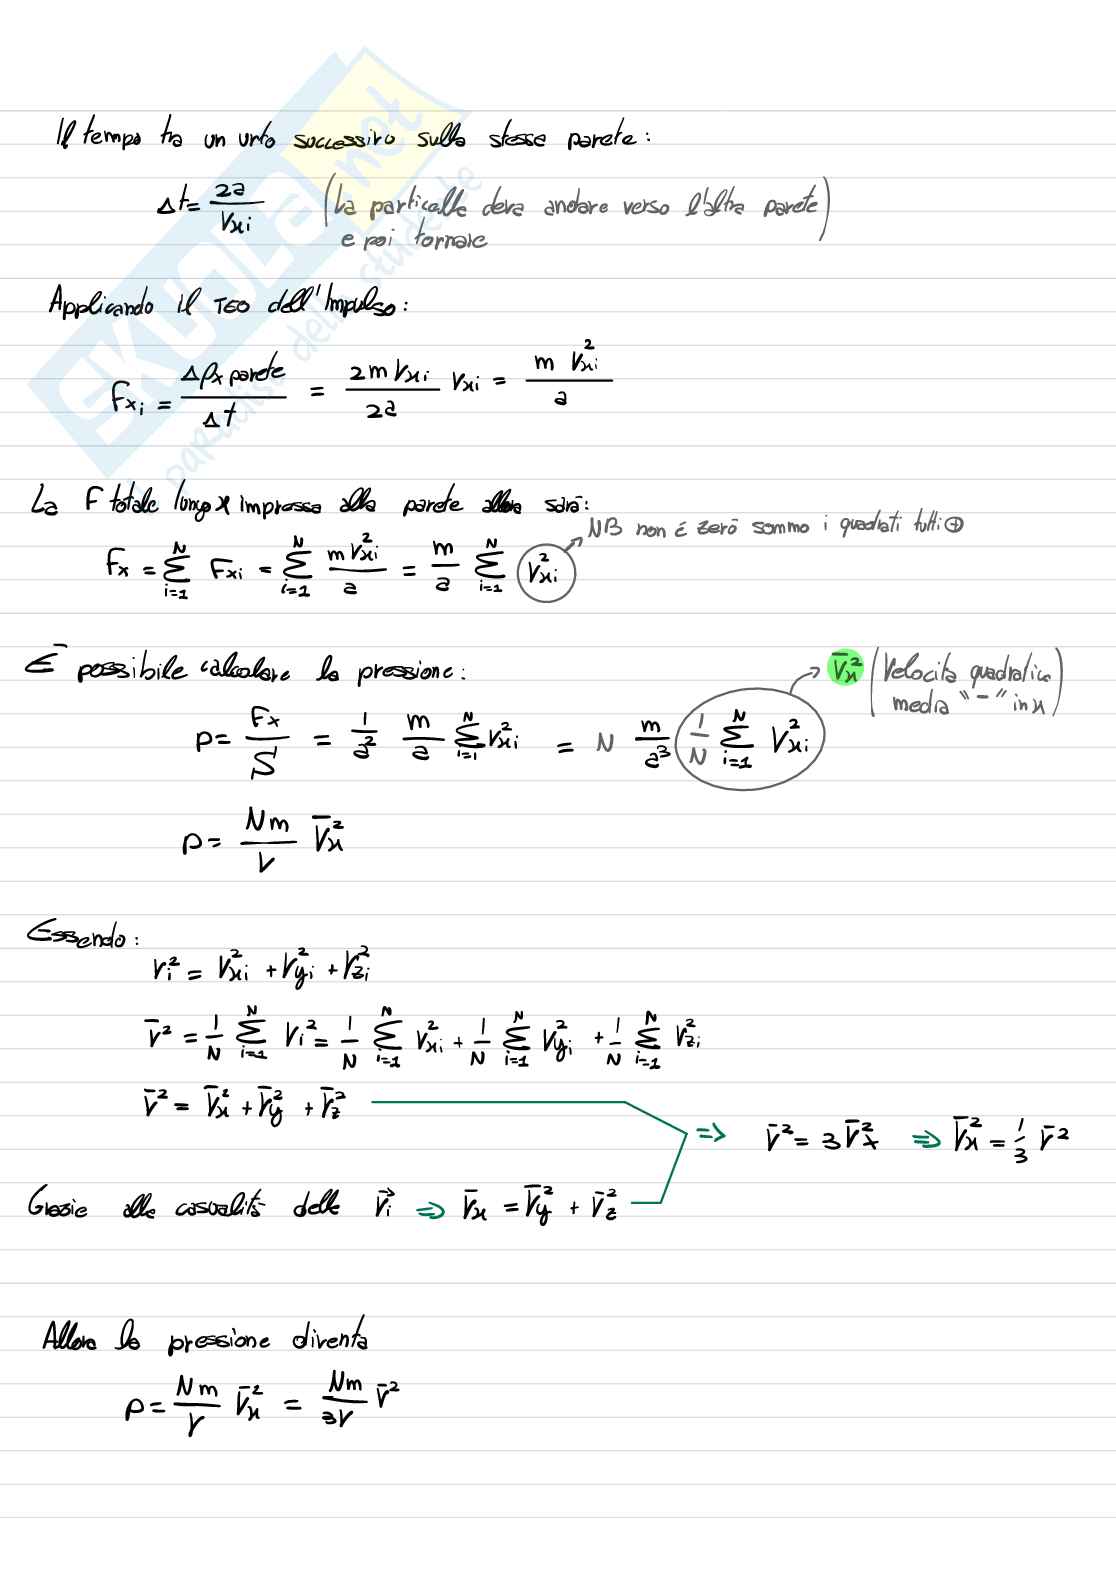 Il tempo tra un urto successivo sulla stessa parete:
Δt = 2a / Vxi (La particella deva andare verso l'altra parete
e poi tornare)
Applicando il TEO dell'Impulso:
Fxi = Δpx parete / Δt = 2mVxi / 2a Vxi = m Vxi² / a
La F totale lungo x impressa alla parete allora sarà:
NB non è zerō sommo i quadrati tutti ⊕
Fx = Σ_{i=1}^{N} Fxi = Σ_{i=1}^{N} m Vxi² / a = m/a Σ_{i=1}^{N} Vxi²
È possibile calcolare la pressione: V̄x² (Velocità quadratica
media "-" in x)
p = Fx / S = 1/a² m/a Σ_{i=1}^{N} Vxi² = N m/a³ 1/N Σ_{i=1}^{N} Vxi²
p = Nm / V V̄x²
Essendo:
Vi² = Vxi² + Vyi² + Vzi²
V̄² = 1/N Σ_{i=1}^{N} Vi² = 1/N Σ_{i=1}^{N} Vxi² + 1/N Σ_{i=1}^{N} Vyi² + 1/N Σ_{i=1}^{N} Vzi²
V̄² = V̄x² + V̄y² + V̄z²
⇒ V̄² = 3V̄x² ⇒ V̄x² = 1/3 V̄²
Grazie alla casualità delle V⃗i ⇒ V̄x = V̄y² + V̄z²
Allora la pressione diventa
p = Nm / V V̄x² = Nm / 3V V̄²
SKUOLA.net
paradiso dello studente